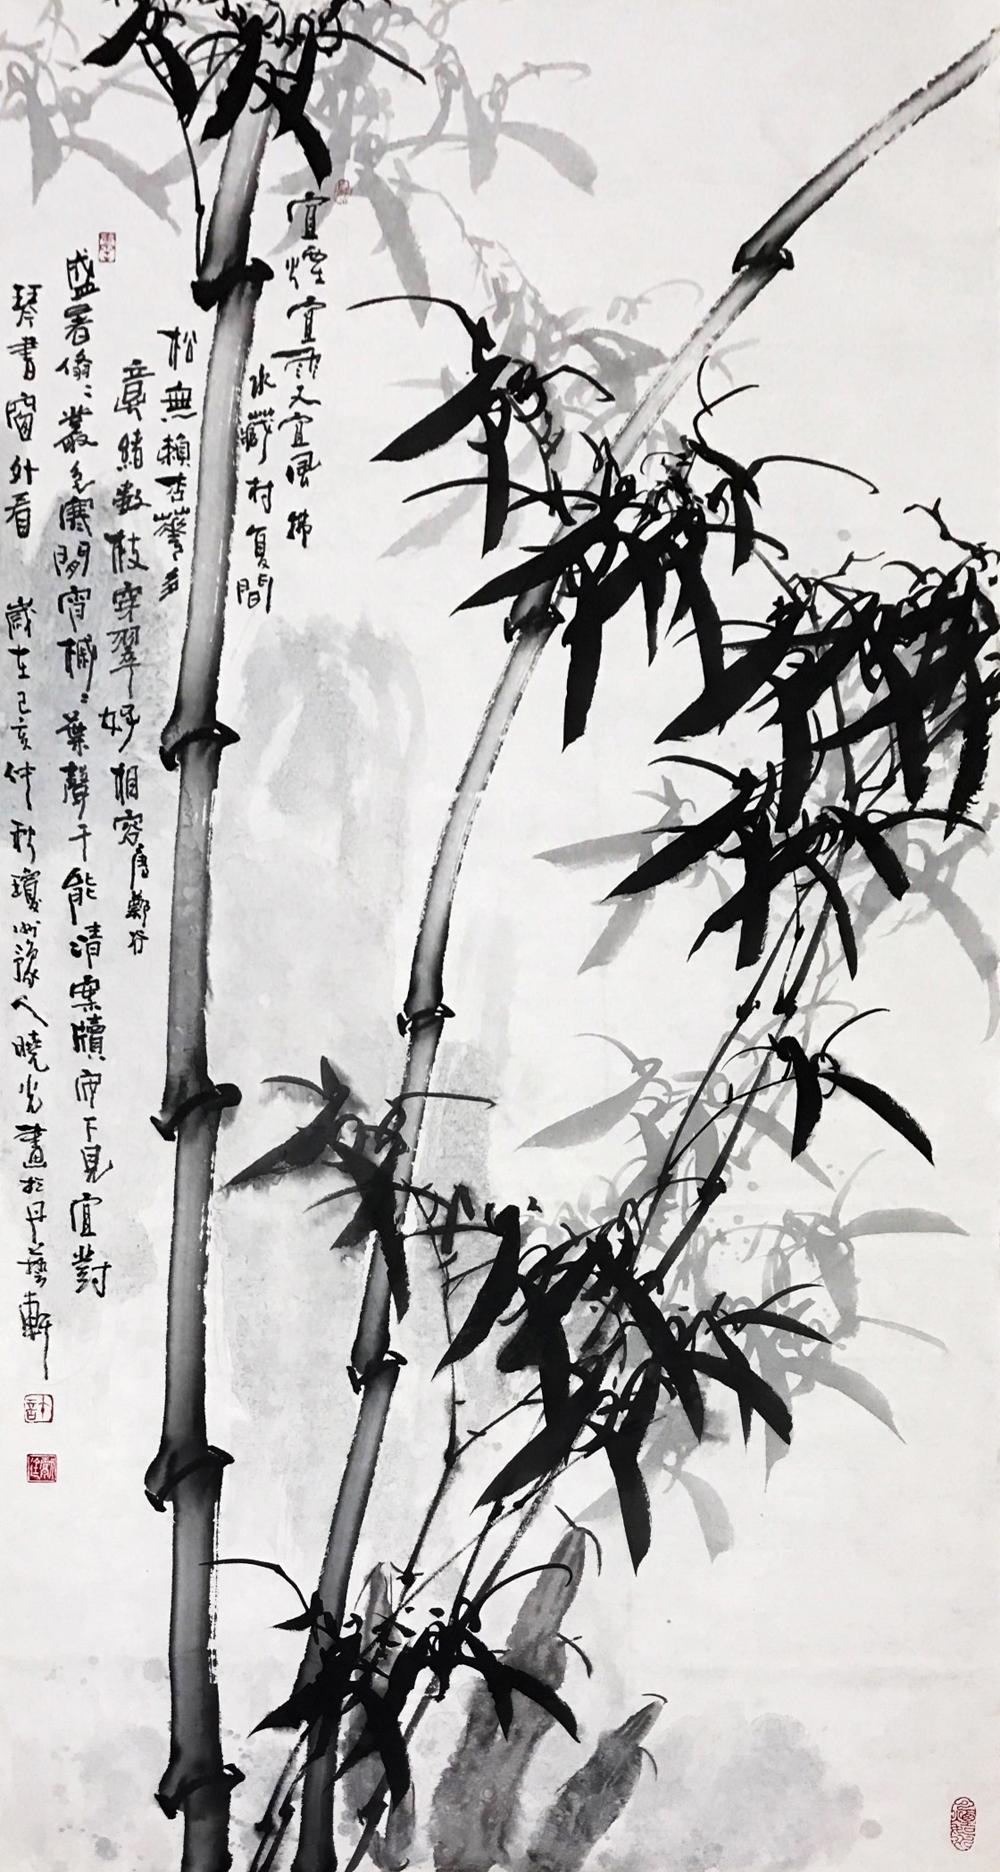 宜煙宜雨又宜風拂
水藏村复間
松無賴杏華多
意緒數枝穿翠好相容唐鄭谷
盛暑翛〻叢色寒閒宵槭〻葉聲干能清案牘帘下見宜對
琴書窗外看 歲在己亥仲秋瓊州豫人曉光畫於丹藝軒